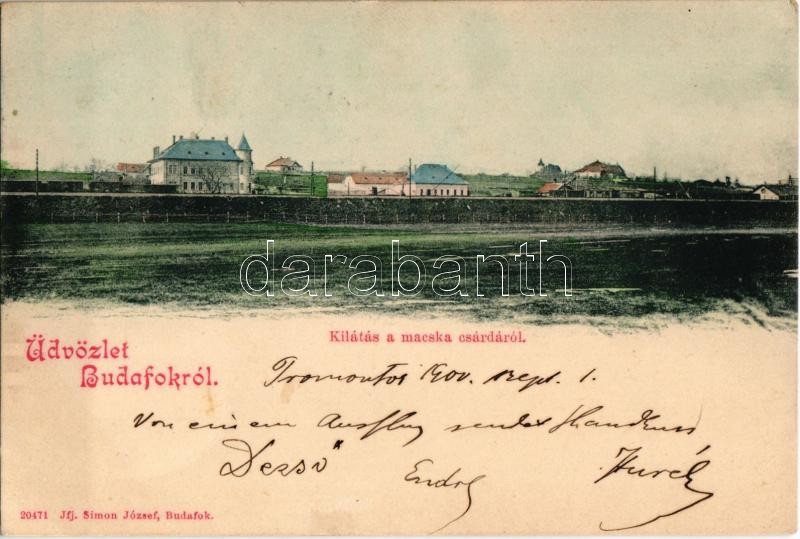 darabanth
Kilátás a macska csárdáról.
Üdvözlet
Budafokról.
Promontor 1900. sept. 1.
Von einem Ausflug sendet Handkuss
Dezső Endre
20471 Jfj. Simon József, Budafok.